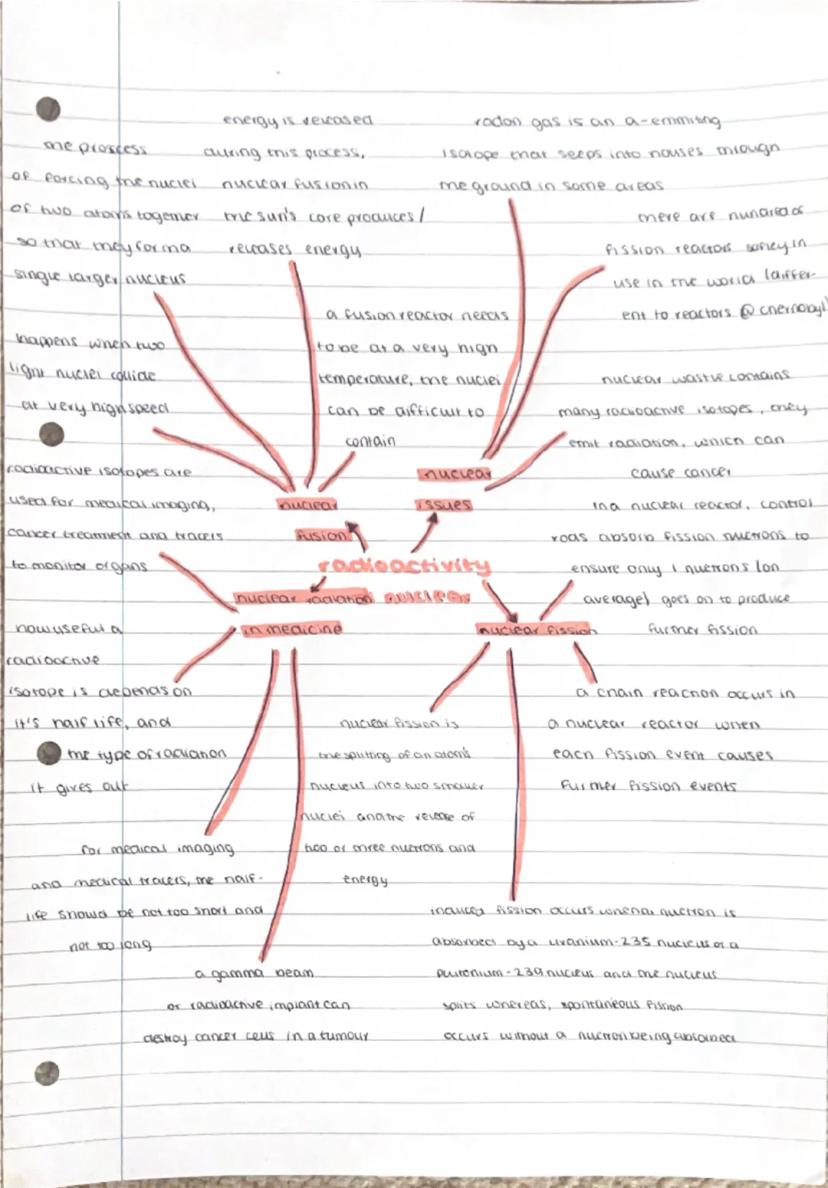 the proscess
of forcing the nuclei
of two atoms together
so that they form a
single larger nucleus
energy is released
during this process,
nuclear fusion in
the sun's core produces/
releases energy
radon gas is an a-emmiting
isotope that seeps into houses through
the ground in some areas
there are hundreds of
fission reactors in
use in the world (differ-
ent to reactors @ chernobyl)
happens when two
light nuclei collide
at very high speed
a fusion reactor needs
to be at a very high
temperature, the nuclei
can be difficult to
contain
nuclear waste contains
many radioactive isotopes, they
emit radiation, which can
cause cancer
nuclear
fusion
nuclear
issues
radioactivity
radioactive isotopes are
used for medical imaging,
cancer treatment and tracers
to monitor organs
in a nuclear reactor, control
rods absorb fission nuetrons to
ensure only 1 nuetrons (on
average) goes on to produce
further fission
nuclear radiation
in medicine
nuclear fission
how useful a
radioactive
isotope is depends on
it's half life, and
the type of radiation
it gives out
nuclear fission is
the splitting of an atom's
nucleus into two smaller
nuclei and the release of
two or three nuetrons and
energy
a chain reaction occurs in
a nuclear reactor when
each fission event causes
further fission events
for medical imaging
and medical tracers, the half-
life should be not too short and
not too long
a gamma beam
or radioactive implant can
destroy cancer cells in a tumour
induced fission occurs when a nuetron is
absorbed by a uranium-235 nucleus or a
plutonium-239 nucleus and the nucleus
splits whereas, spontaneous fission
occurs without a nuetron being absorbed